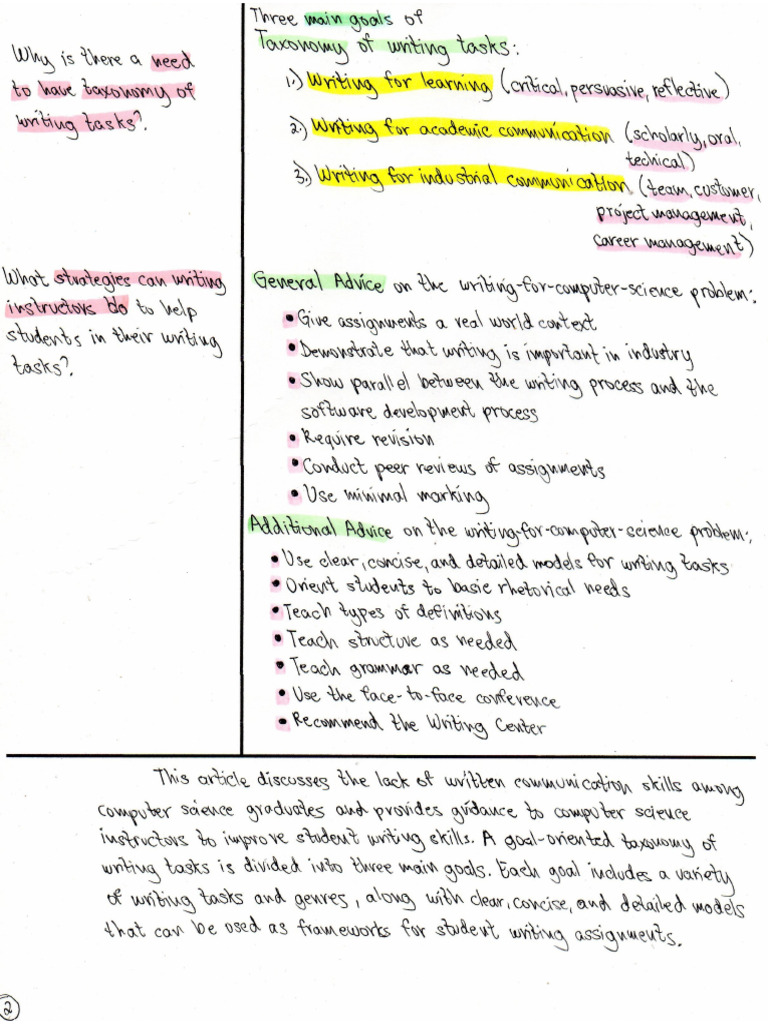 Why is there a need
to have taxonomy of
writing tasks?
Three main goals of
Taxonomy of writing tasks:
1.) Writing for learning (critical, persuasive, reflective)
2.) Writing for academic communication (scholarly, oral,
techical)
3.) Writing for industrial communication (team, customer,
project management,
career management)
What strategies can writing
instructors do to help
students in their writing
tasks?
General Advice on the writing-for-computer-science problem:
• Give assignments a real world context
• Demonstrate that writing is important in industry
• Show parallel between the writing process and the
software development process
• Require revision
• Conduct peer reviews of assignments
• Use minimal marking
Additional Advice on the writing-for-computer-science problem:
• Use clear, concise, and detailed models for writing tasks
• Orient students to basic rhetorical needs
• Teach types of definitions
• Teach structure as needed
• Teach grammar as needed
• Use the face-to-face conference
• Recommend the Writing Center
This article discusses the lack of written communication skills among
computer science graduates and provides guidance to computer science
instructors to improve student writing skills. A goal-oriented taxonomy of
writing tasks is divided into three main goals. Each goal includes a variety
of writing tasks and genres, along with clear, concise, and detailed models
that can be used as frameworks for student writing assignments.
2